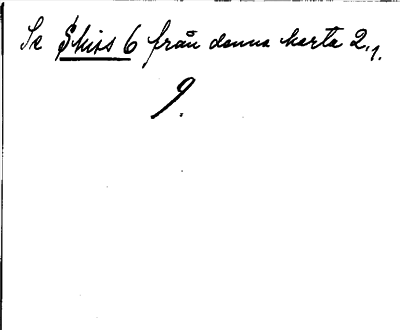 Se Skiss 6 från denna karta 2,1.
9.